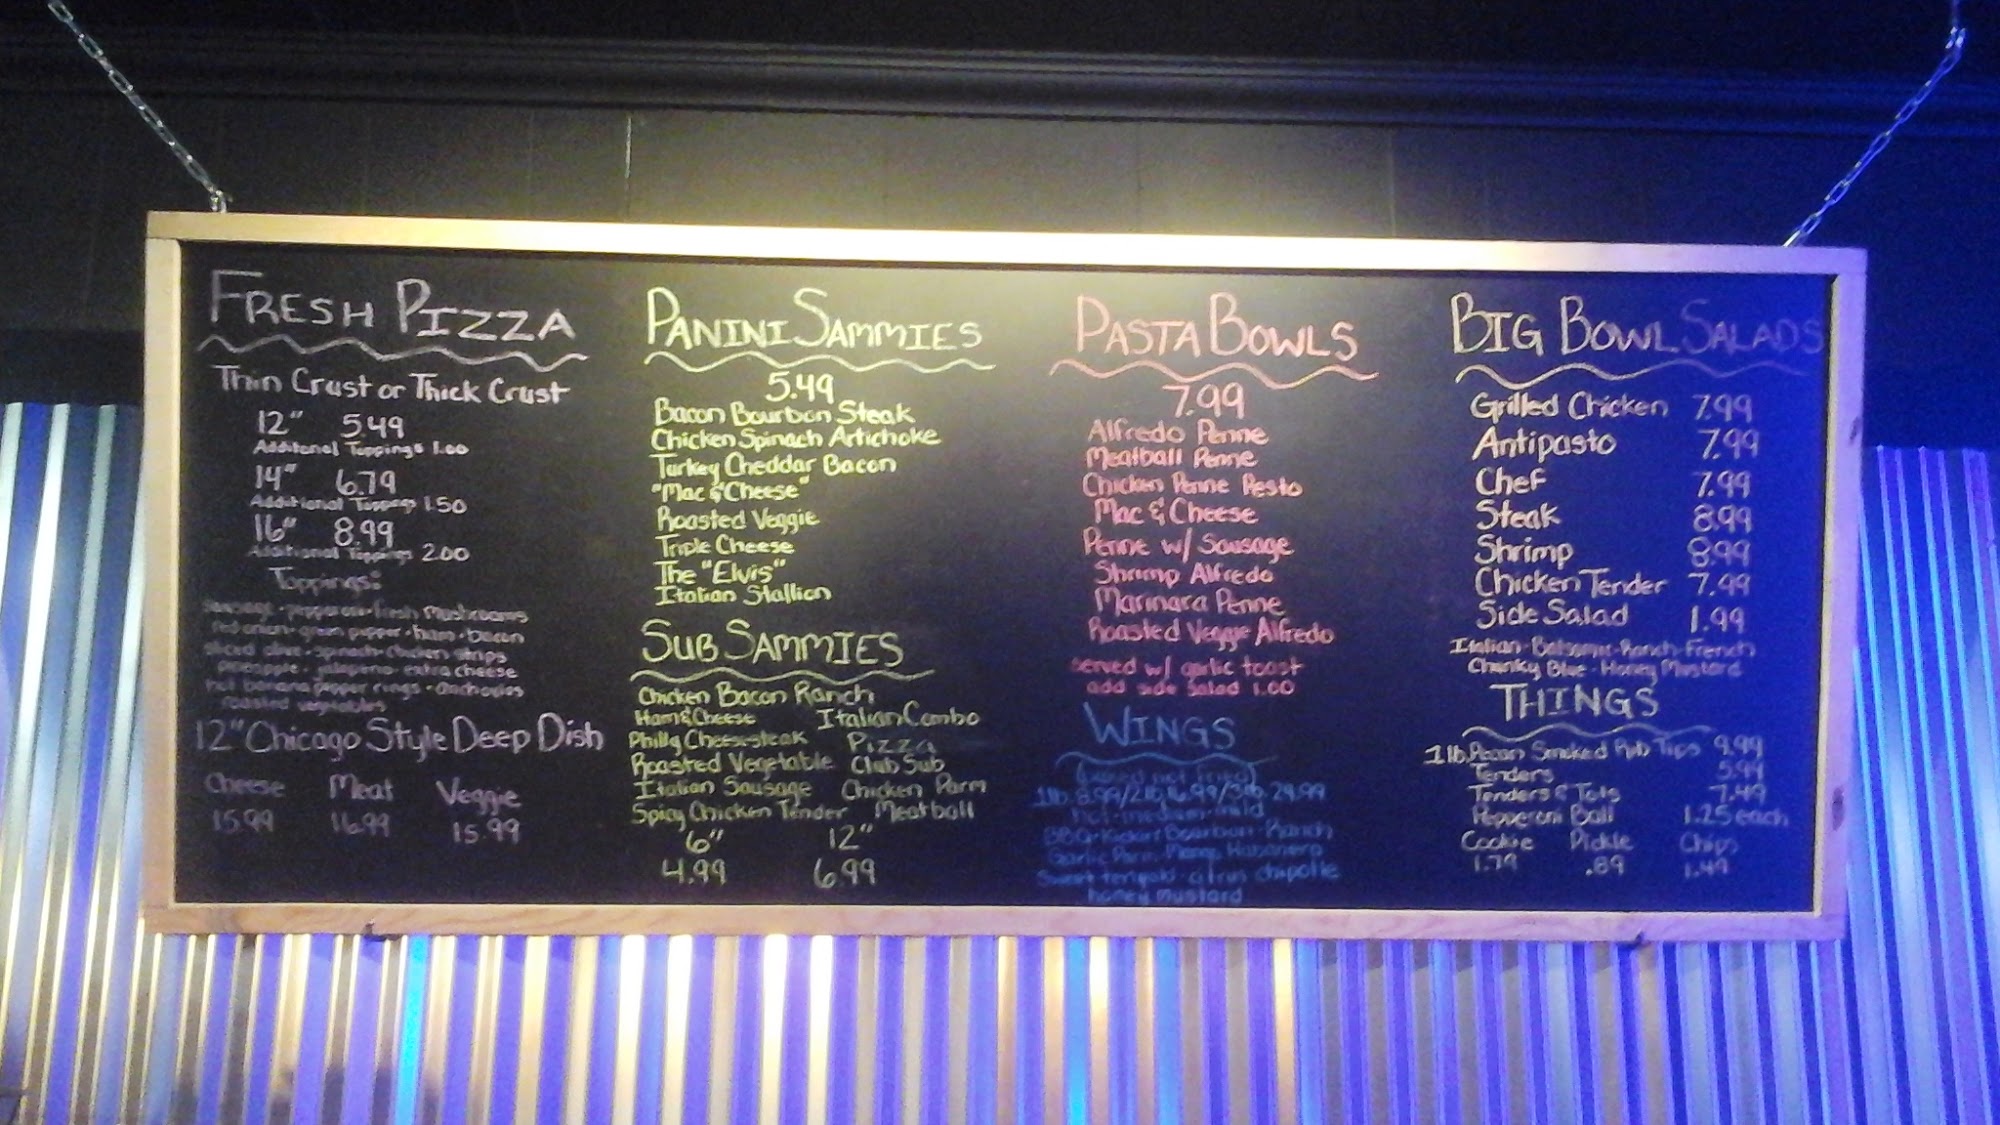 FRESH PIZZA
Thin Crust or Thick Crust
12" 5.49
Additional Toppings 1.00
14" 6.79
Additional Toppings 1.50
16" 8.99
Additional Toppings 2.00
Toppings:
sausage · pepperoni · fresh mushrooms
red onion · green pepper · ham · bacon
sliced olive · spinach · chicken strips
pineapple · jalapeno · extra cheese
hot banana pepper rings · anchovies
roasted vegetables
12" Chicago Style Deep Dish
Cheese Meat Veggie
15.99 16.99 15.99
PANINI SAMMIES
5.49
Bacon Bourbon Steak
Chicken Spinach Artichoke
Turkey Cheddar Bacon
"Mac & Cheese"
Roasted Veggie
Triple Cheese
The "Elvis"
Italian Stallion
SUB SAMMIES
Chicken Bacon Ranch
Ham & Cheese Italian Combo
Philly Cheesesteak Pizza
Roasted Vegetable Club Sub
Italian Sausage Chicken Parm
Spicy Chicken Tender Meatball
6" 12"
4.99 6.99
PASTA BOWLS
7.99
Alfredo Penne
Meatball Penne
Chicken Penne Pesto
Mac & Cheese
Penne w/ Sausage
Shrimp Alfredo
Marinara Penne
Roasted Veggie Alfredo
served w/ garlic toast
add side salad 1.00
WINGS
(baked not fried)
1lb. 8.99/2lb. 16.99/3lb. 24.99
hot · medium · mild
BBQ · Bourbon · Ranch
Garlic Parm · Mango Habanero
Sweet teriyaki · citrus chipotle
honey mustard
BIG BOWL SALADS
Grilled Chicken 7.99
Antipasto 7.99
Chef 7.99
Steak 8.99
Shrimp 8.99
Chicken Tender 7.99
Side Salad 1.99
Italian · Balsamic · Ranch · French
Chunky Blue · Honey Mustard
THINGS
1 lb. Pecan Smoked Rib Tips 9.99
Tenders 5.99
Tenders & Tots 7.49
Pepperoni Ball 1.25 each
Cookie Pickle Chips
1.79 .89 1.49